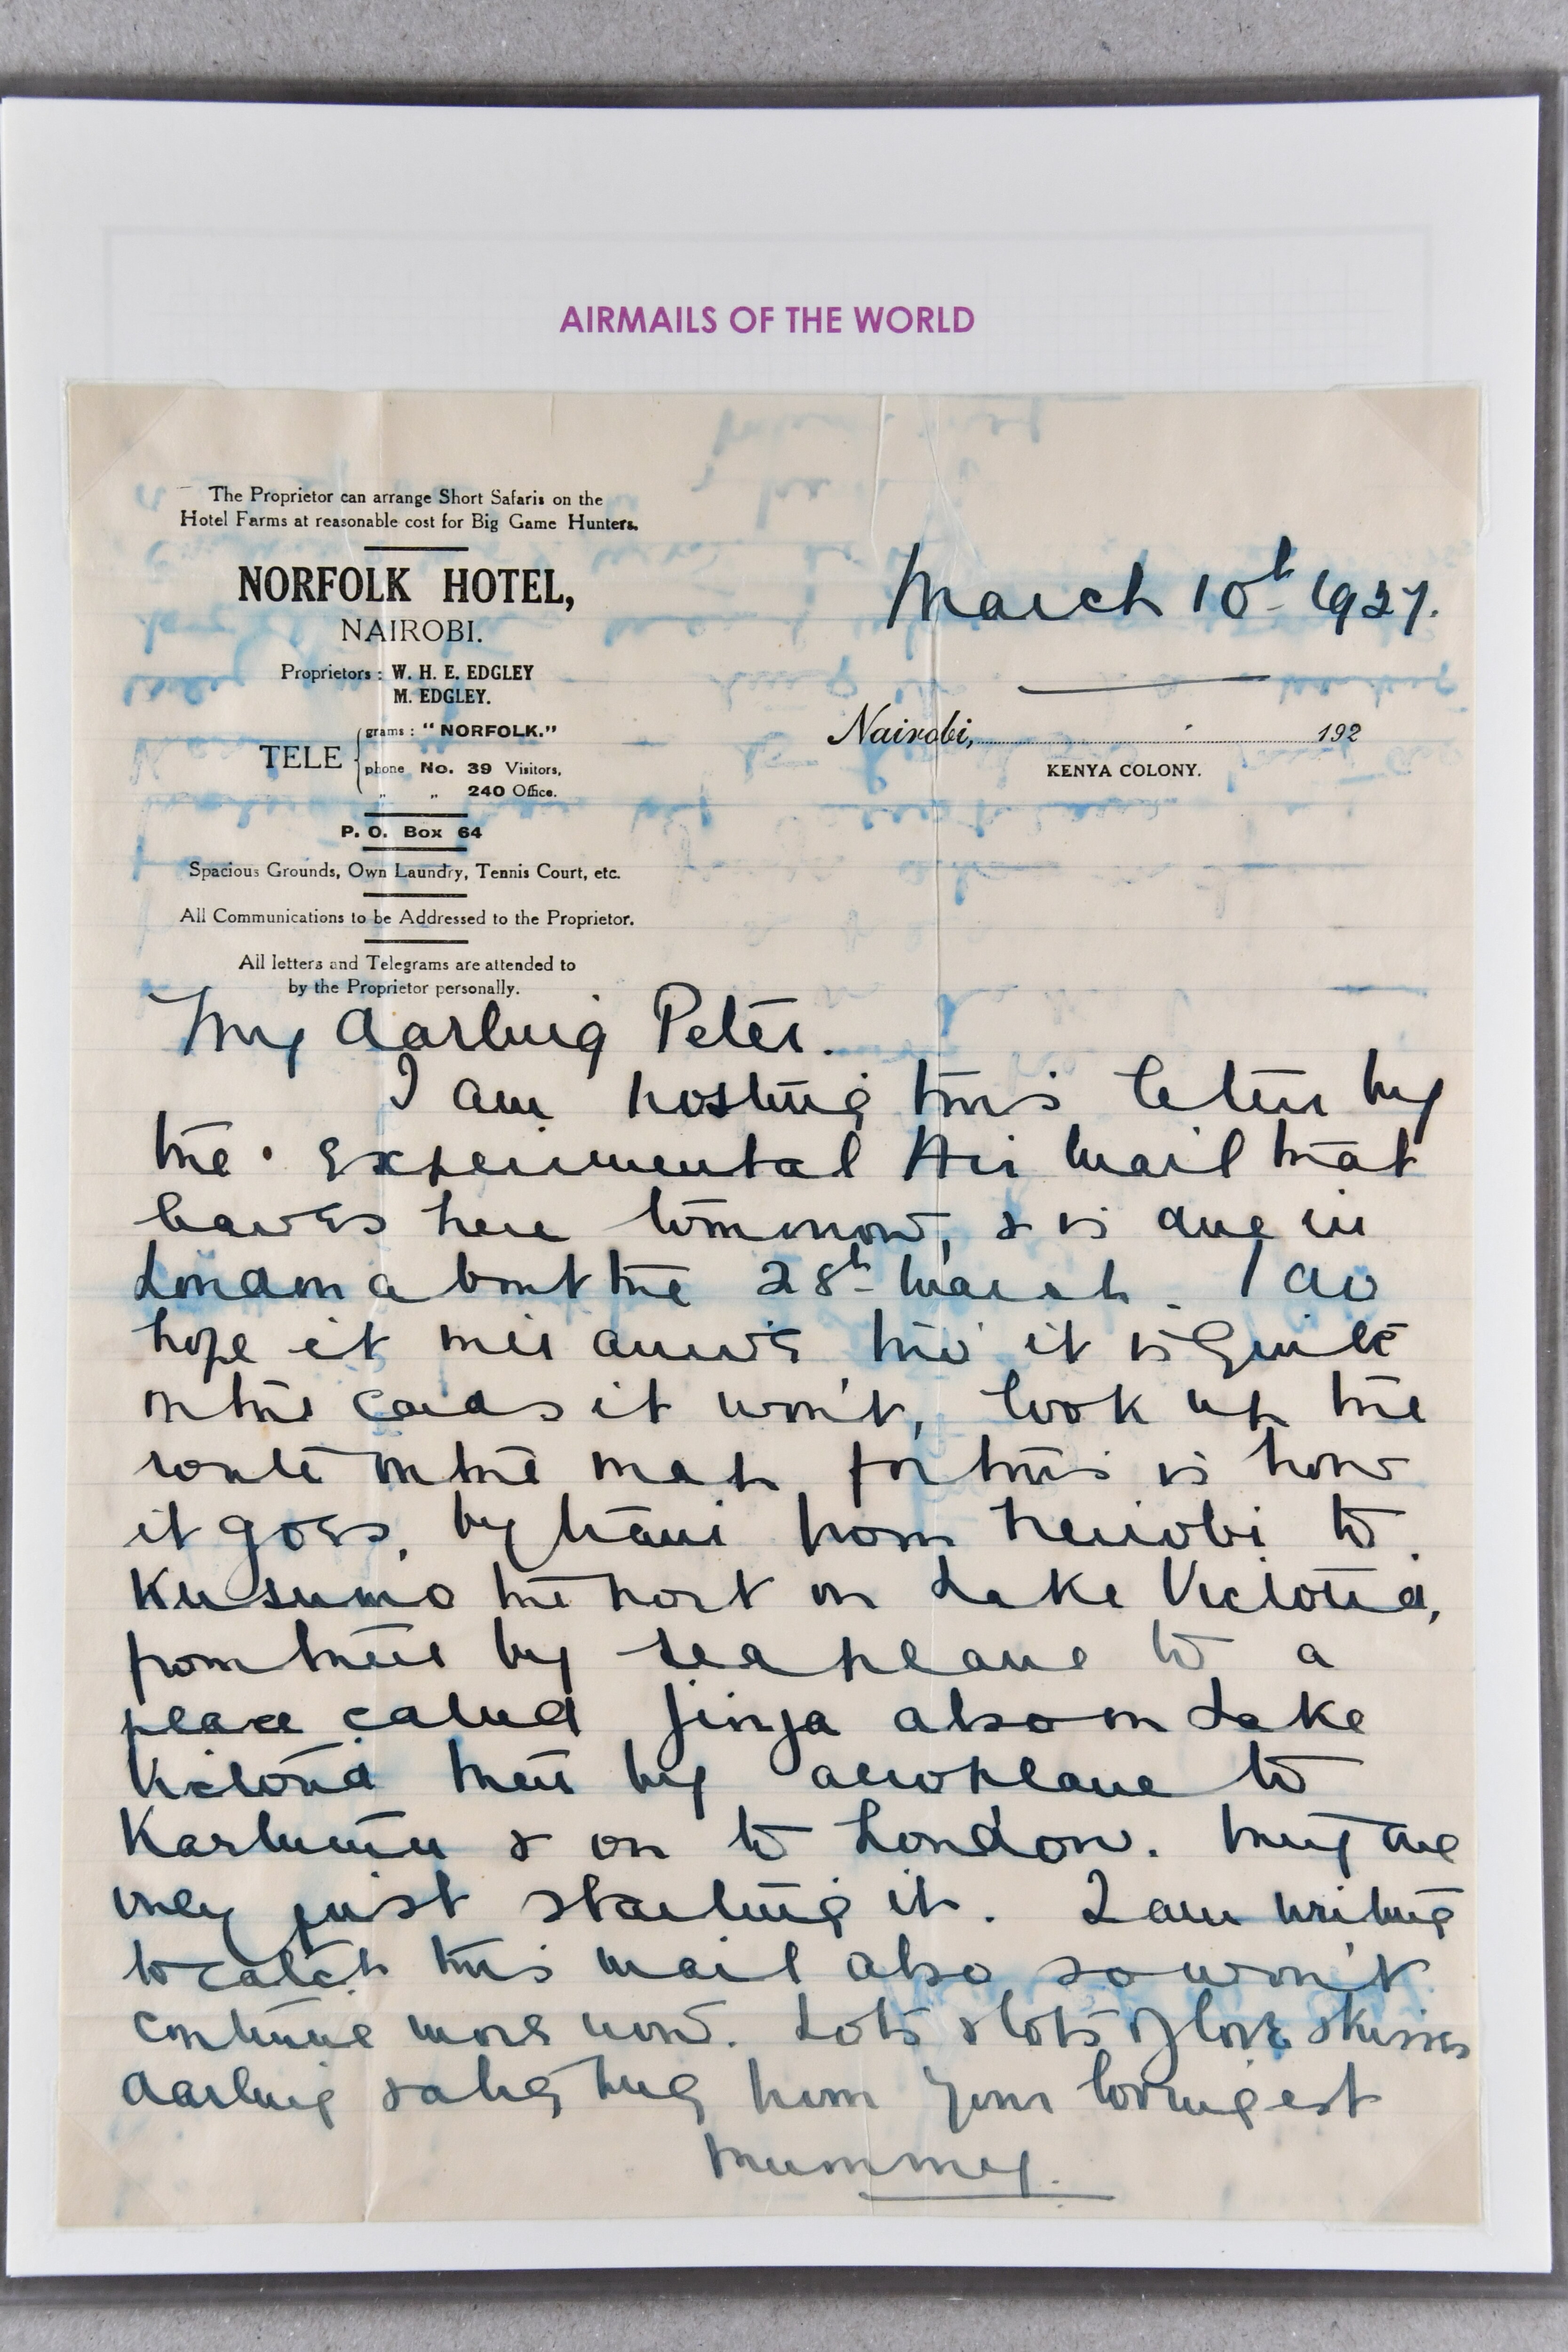 AIRMAILS OF THE WORLD
The Proprietor can arrange Short Safaris on the
Hotel Farms at reasonable cost for Big Game Hunters.
NORFOLK HOTEL,
NAIROBI.
Proprietors : W. H. E. EDGLEY
M. EDGLEY.
TELE
grams : "NORFOLK."
phone No. 39 Visitors,
" " 240 Office.
P. O. Box 64
Spacious Grounds, Own Laundry, Tennis Court, etc.
All Communications to be Addressed to the Proprietor.
All letters and Telegrams are attended to
by the Proprietor personally.
March 10th 1927.
Nairobi, 192
KENYA COLONY.
My darling Peter.
I am posting this letter by
the experimental Air Mail that
leaves here tommorow, & is due in
London about the 28th March. I do
hope it will arrive tho' it is quite
on the cards it won't, look up the
route on the map for this is how
it goes, by train from Neirobi to
Kusumo the port on Lake Victoria,
from there by sea plane to a
place called Jinja also on Lake
Victoria then by aeroplane to
Kartumu & on to London. They are
only just starting it. I am writing
to catch this mail also so won't
continue more now. Lots & lots of love & kisses
darling & a big hug from your lovingest
Mummy.